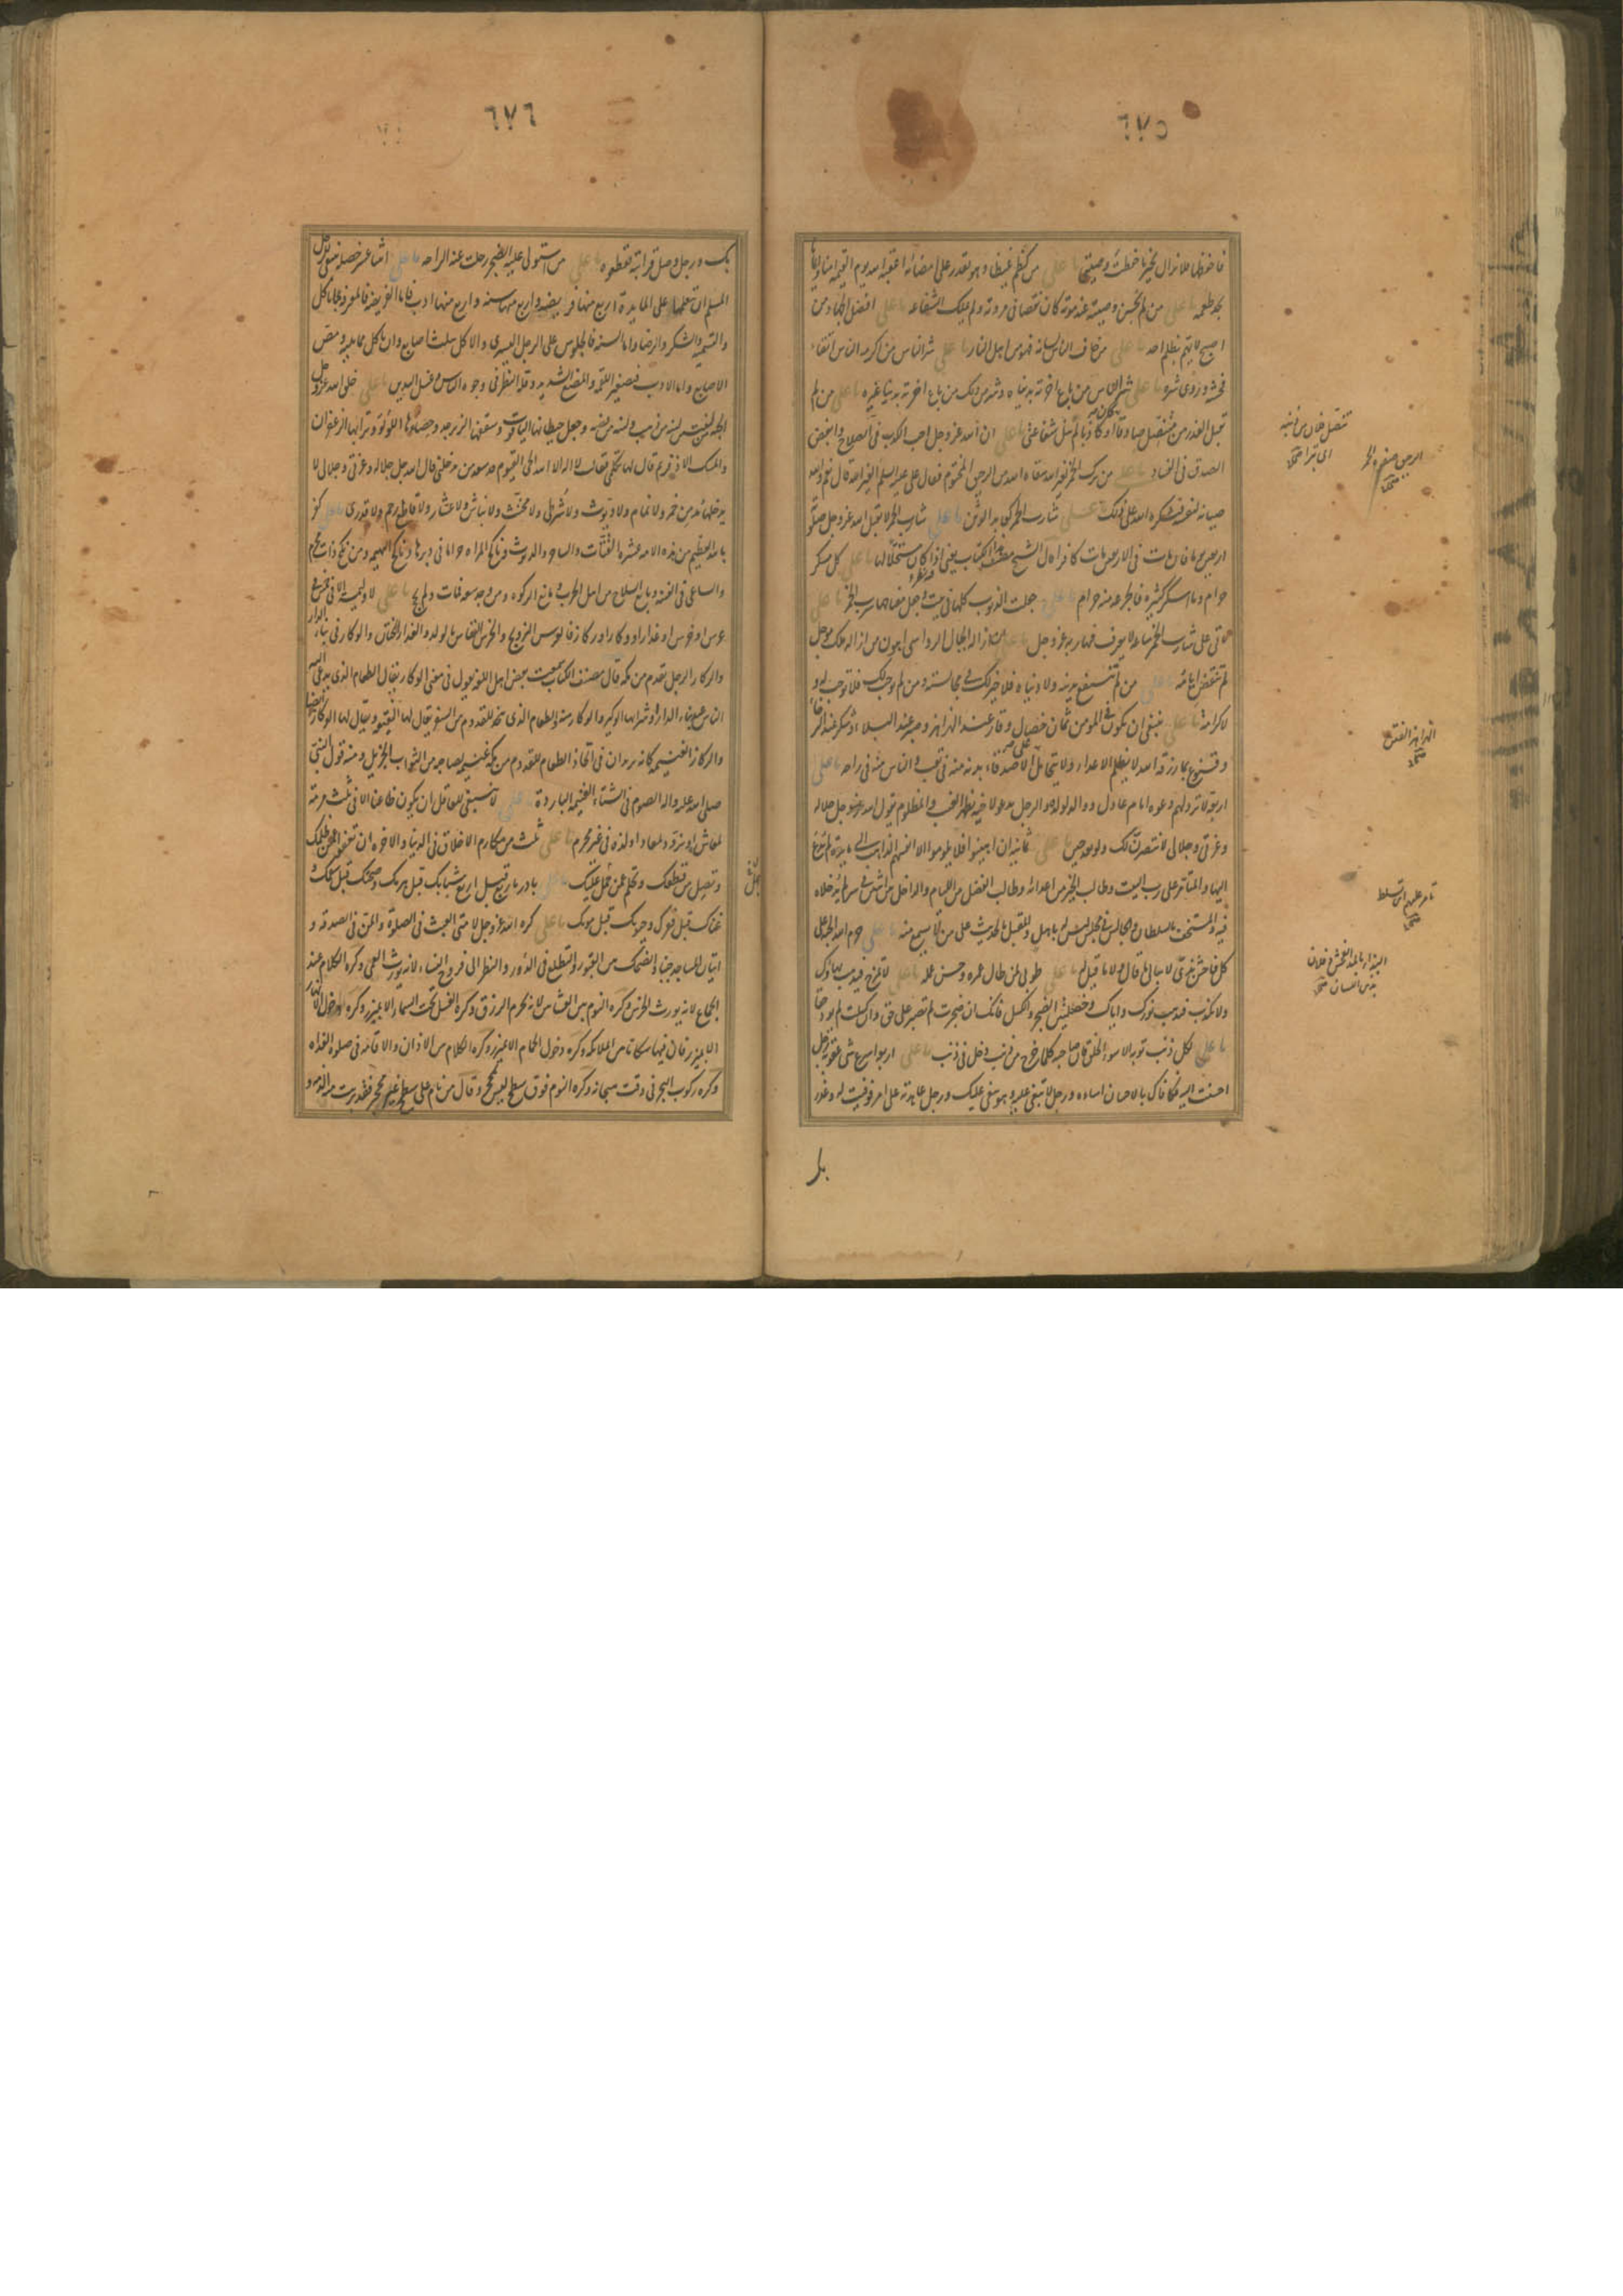 ٦٧٥
فاحفظها فلا تزال بخير ما حفظت وصيتي يا علي من كظم غيظا وهو يقدر على امضائه اعقبه الله يوم القيمة امنا وايمانا
يجد طعمه يا علي من لم يحسن وصيته عند موته كان نقصا في مروته ولم يملك الشفاعة يا علي افضل الجهاد من
اصبح لا يهم بظلم احد يا علي من خاف الناس لسانه فهو من اهل النار يا علي شر الناس من اكرمه الناس اتقاء
فحشه وروى شره يا علي شر الناس من باع اخرته بدنياه وشر من ذلك من باع اخرته بدنيا غيره يا علي من لم
يقبل العذر من متنصل صادقا كان او كاذبا لم ينل شفاعتي يا علي ان الله عز وجل احب الكذب في الصلاح وابغض
الصدق في الفساد يا علي من ترك الخمر لغير الله سقاه الله من الرحيق المختوم فقال علي عليه السلم لغير الله قال نعم والله
صيانة لنفسه يشكره الله على ذلك يا علي شارب الخمر كعابد الوثن يا علي شارب الخمر لا يقبل الله عز وجل صلوته
اربعين يوما فان مات في الاربعين مات كافرا قال الشيخ مصنف هذا الكتاب يعني اذا كان مستحلا لها يا علي كل مسكر
حرام وما اسكر كثيره فالجرعة منه حرام يا علي جعلت الذنوب كلها في بيت وجعل مفتاحها شرب الخمر يا علي
تاتي على شارب الخمر ساعة لا يعرف فيها ربه عز وجل يا علي ان ازالة الجبال الرواسي اهون من ازالة ملك موجل
لم تنقض ايامه يا علي من لم تنتفع بدينه ولا دنياه فلا خير لك في مجالسته ومن لم يوجب لك فلا توجب له ولا
كرامة يا علي ينبغي ان يكون في المؤمن ثمان خصال وقار عند الهزاهز وصبر عند البلاء وشكر عند الرخاء
وقنوع بما رزقه الله لا يظلم الاعداء ولا يتحامل على الاصدقاء بدنه منه في تعب والناس منه في راحة يا علي
اربعة لا ترد لهم دعوة امام عادل ووالد لولده والرجل يدعو لاخيه بظهر الغيب والمظلوم يقول الله عز وجل جلاله
وعزتي وجلالي لانتصرن لك ولو بعد حين يا علي ثمانية ان اهينوا فلا يلوموا الا انفسهم الذاهب الى مائدة لم يدع
اليها والمتامر على رب البيت وطالب الخير من اعدائه وطالب الفضل من اللئام والداخل بين اثنين في سر لم يدخلاه
فيه والمستخف بالسلطان والجالس في مجلس ليس له باهل والمقبل بالحديث على من لا يسمع منه يا علي حرم الله الجنة على
كل فاحش بذي لا يبالي ما قال ولا ما قيل له يا علي طوبى لمن طال عمره وحسن عمله يا علي لا تمزح فيذهب بهاؤك
ولا تكذب فيذهب نورك واياك وخصلتين الضجر والكسل فانك ان ضجرت لم تصبر على حق وان كسلت لم تود حقا
يا علي لكل ذنب توبة الا سوء الخلق فان صاحبه كلما خرج من ذنب دخل في ذنب يا علي اربعة اسرع شي عقوبة رجل
احسنت اليه فكافاك بالاحسان اساءة ورجل لا تبغي عليه وهو يبغي عليك ورجل عاهدته على امر فوفيت له وغدر
بك
تنصل فلان من ذنبه
اى تبرا صحاح
الرحيق صفوة الخمر
صحاح
الهزاهز الفتن
صحاح
تامر عليهم اى تسلط
صحاح
البذاء بالمد الفحش وفلان
بذى اللسان صحاح
٦٧٦
بك ورجل وصل قرابته فقطعوه يا علي من استولى عليه الضجر رحلت عنه الراحة يا علي اثنا عشر خصلة ينبغي للرجل
المسلم ان يتعلمها على المائدة اربع منها فريضة واربع منها سنة واربع منها ادب فاما الفريضة فالمعرفة بما ياكل
والتسمية والشكر والرضا واما السنة فالجلوس على الرجل اليسرى والاكل بثلث اصابع وان ياكل مما يليه ومص
الاصابع واما الادب فتصغير اللقمة والمضغ الشديد وقلة النظر في وجوه الناس وغسل اليدين يا علي خلق الله عز وجل
الجنة من لبنتين لبنة من ذهب ولبنة من فضة وجعل حيطانها الياقوت وسقفها الزبرجد وحصاها اللؤلؤ وترابها الزعفران
والمسك الاذفر ثم قال لها تكلمي فقالت لا اله الا الله الحي القيوم قد سعد من يدخلني قال الله جل جلاله وعزتي وجلالي لا
يدخلها مدمن خمر ولا نمام ولا ديوث ولا شرطي ولا مخنث ولا نباش ولا عشار ولا قاطع رحم ولا قدري يا علي كفر
بالله العظيم من هذه الامة عشرة القتات والساحر والديوث وناكح المراة حراما في دبرها وناكح البهيمة ومن نكح ذات محرم
والساعي في الفتنة وبايع السلاح من اهل الحرب ومانع الزكوة ومن وجد سعة فمات ولم يحج يا علي لا وليمة الا في خمس في
عرس او خرس او عذار او وكار او ركاز فالعرس التزويج والخرس النفاس بالولد والعذار الختان والوكار في بناء الدار
والركاز الرجل يقدم من مكة قال مصنف الكتاب سمعت بعض اهل اللغة يقول في معنى الوكار يقال للطعام الذي يدعى اليه
الناس عند بناء الدار او شرائها الوكيرة والوكار منه والطعام الذي يتخذ للقدوم من السفر يقال لها النقيعة ويقال لها الوكار ايضا
والركاز الغنيمة كانه يريد ان في اتخاذ الطعام للقدوم من مكة غنيمة لصاحبه من الثواب الجزيل ومنه قول النبي
صلى الله عليه واله الصوم في الشتاء الغنيمة الباردة يا علي لا ينبغي للعاقل ان يكون ظاعنا الا في ثلث مرمة
لمعاش او تزود لمعاد او لذة في غير محرم يا علي ثلث من مكارم الاخلاق في الدنيا والاخرة ان تعفو عمن ظلمك
وتصل من قطعك وتحلم عمن جهل عليك يا علي بادر باربع قبل اربع شبابك قبل هرمك وصحتك قبل سقمك
غناك قبل فقرك وحيوتك قبل موتك يا علي كره الله عز وجل لامتي العبث في الصلوة والمن في الصدقة و
اتيان المساجد جنبا والضحك بين القبور والتطلع في الدور والنظر الى فروج النساء لانه يورث العمى وكره الكلام عند
الجماع لانه يورث الخرس وكره النوم بين العشائين لانه يحرم الرزق وكره الغسل تحت السماء الا بميزر وكره دخول الانهار
الا بميزر فان فيها سكانا من الملائكة وكره دخول الحمام الا بميزر وكره الكلام بين الاذان والاقامة في صلوة الغداة
وكره ركوب البحر في وقت هيجانه وكره النوم فوق سطح ليس بمحجر وقال من نام على سطح غير محجر فقد برئت منه الذمة و